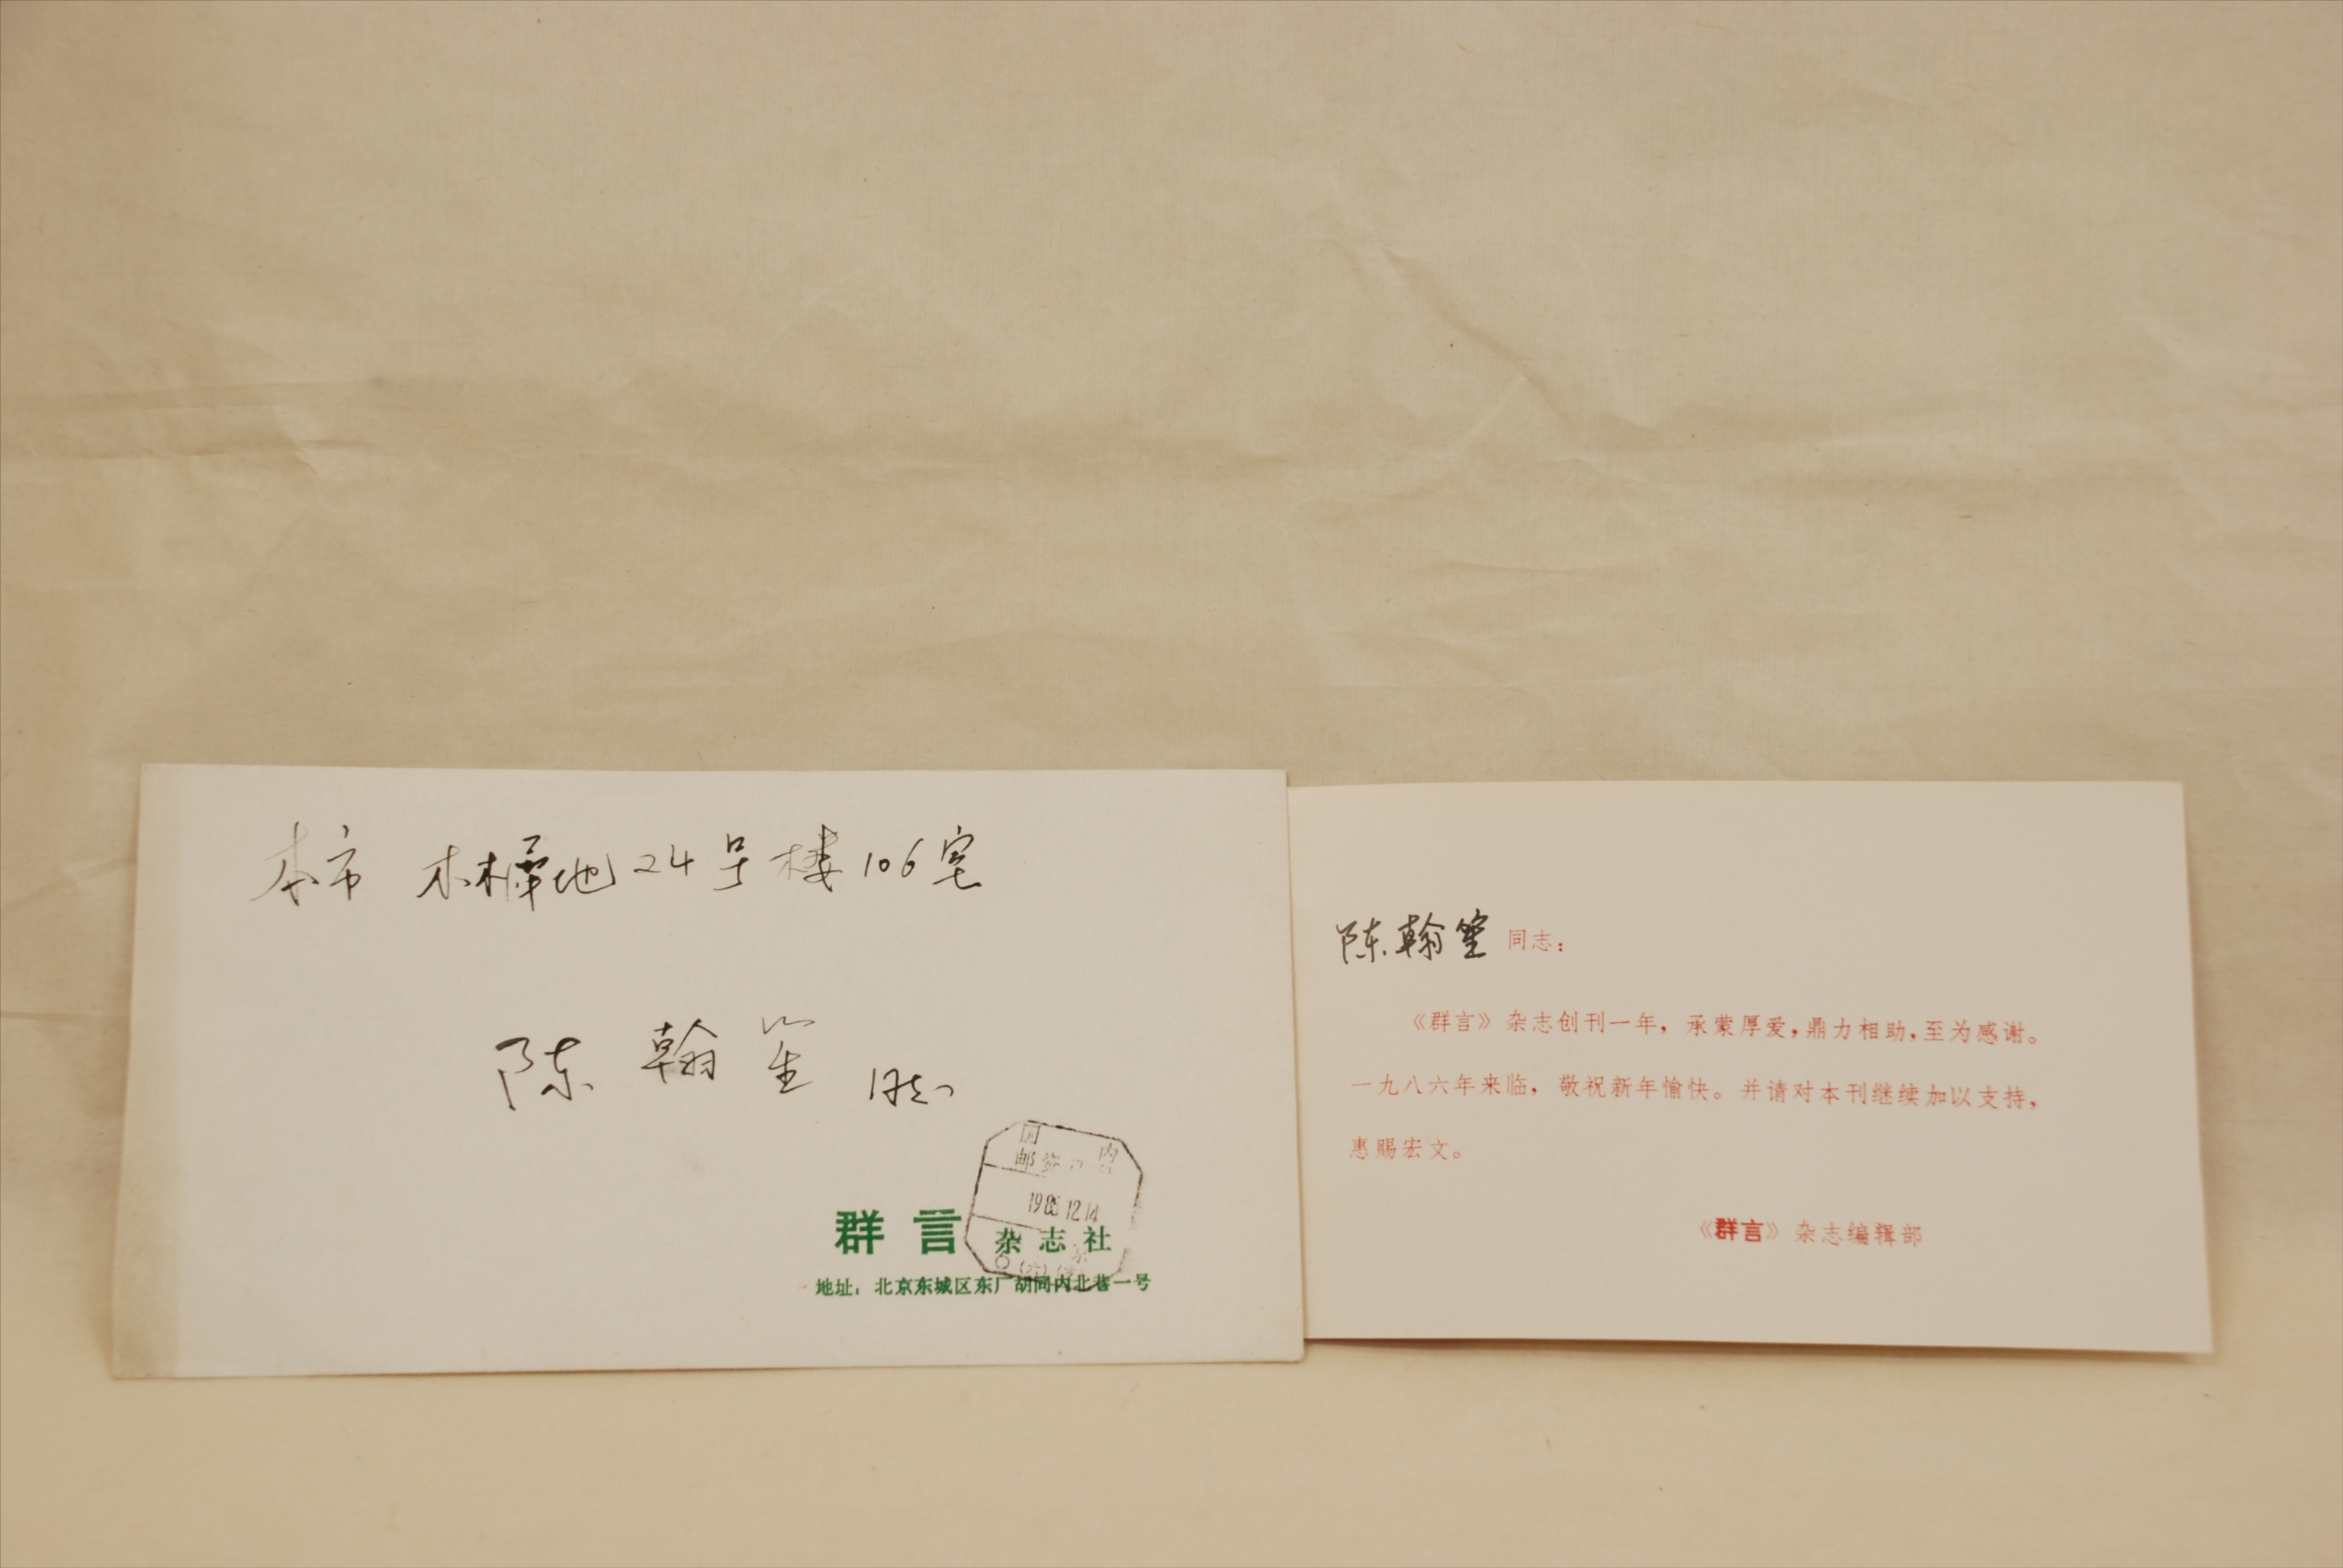 本市 木樨地24号楼106宅
陈翰笙 同志
国内
邮资
1985.12.14
群言杂志社
地址：北京东城区东厂胡同内北巷一号
陈翰笙 同志：
《群言》杂志创刊一年，承蒙厚爱，鼎力相助，至为感谢。
一九八六年来临，敬祝新年愉快。并请对本刊继续加以支持，
惠赐宏文。
《群言》杂志编辑部